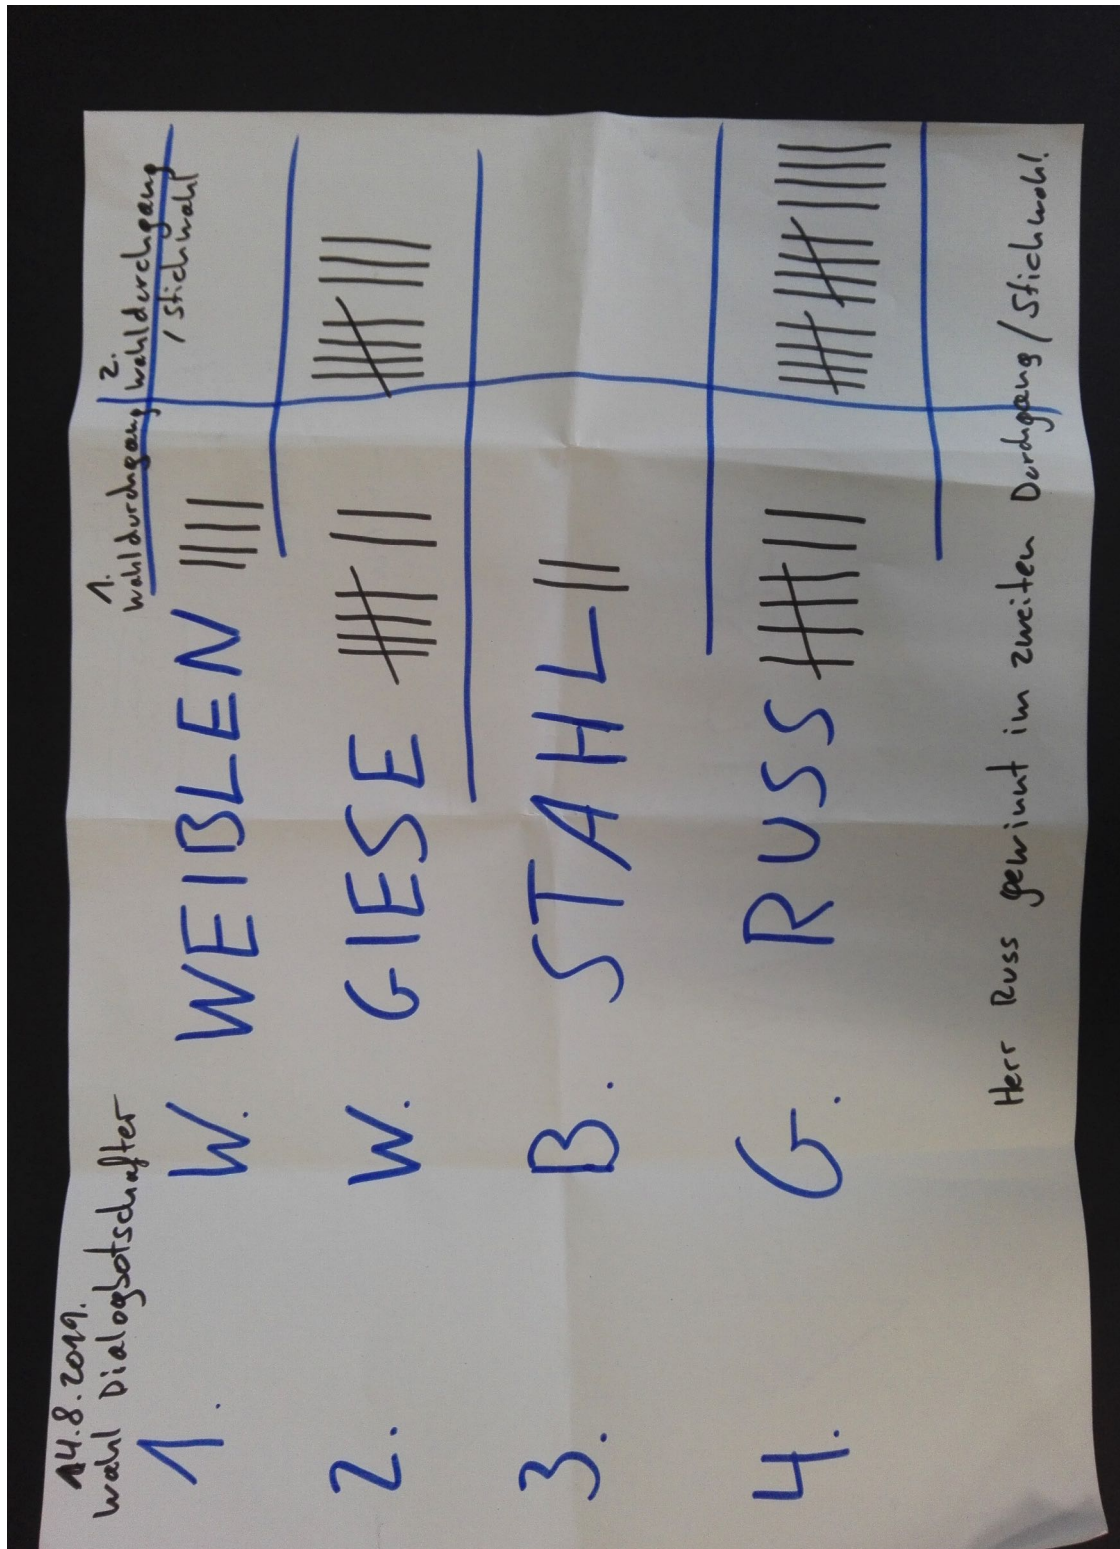 14.8.2019.
Wahl Dialogbotschafter
1. Wahldurchgang
2. Wahldurchgang / Stichwahl
1. W. WEIBLEN |||| 
2. W. GIESE |||| || |||| |||
3. B. STAHL ||
4. G. RUSS |||| || |||| |||| ||||
Herr Russ gewinnt im zweiten Durchgang / Stichwahl.